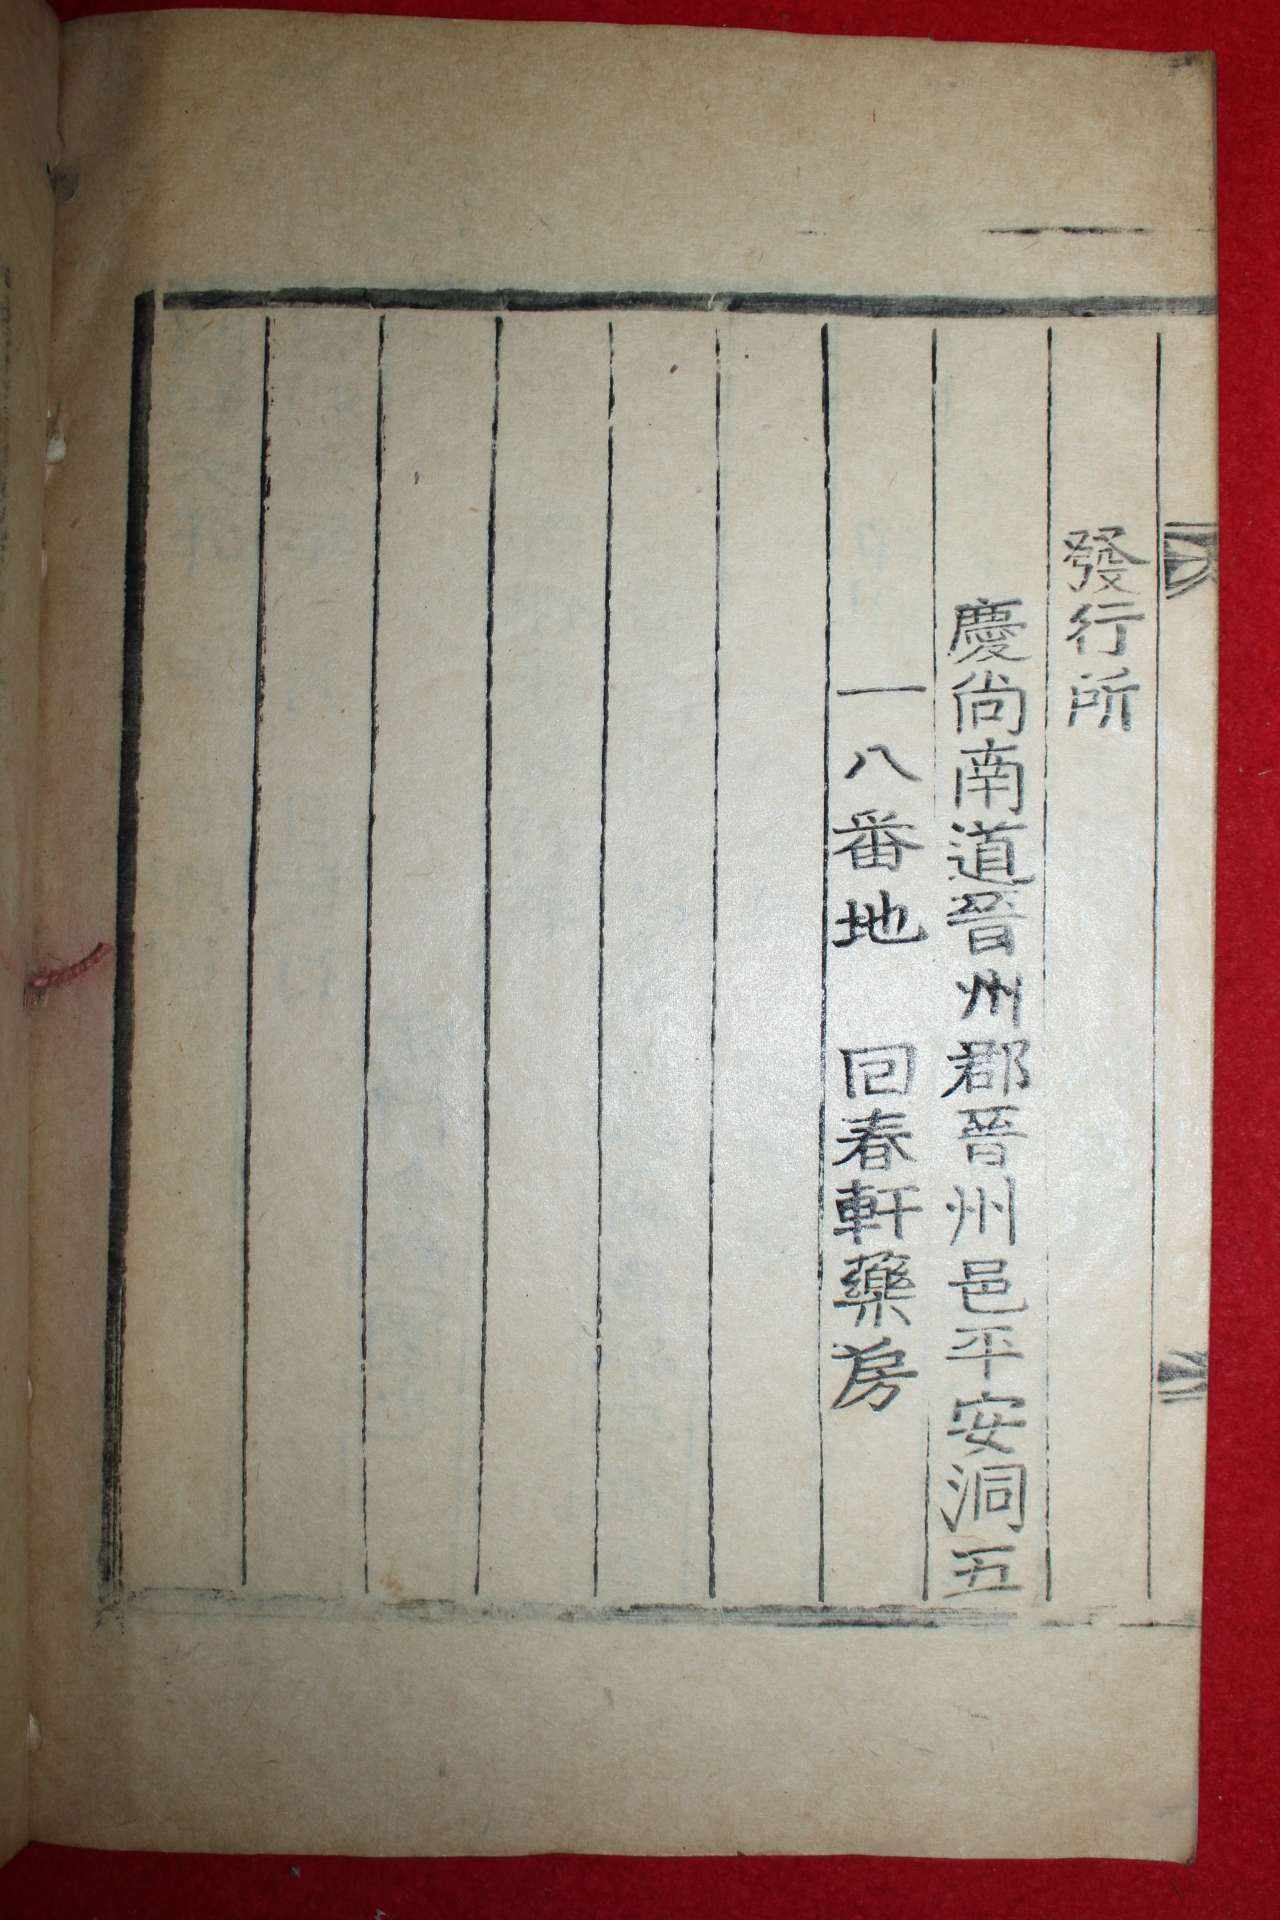 發行所
慶尙南道晉州郡晉州邑平安洞五
一八番地 回春軒藥房